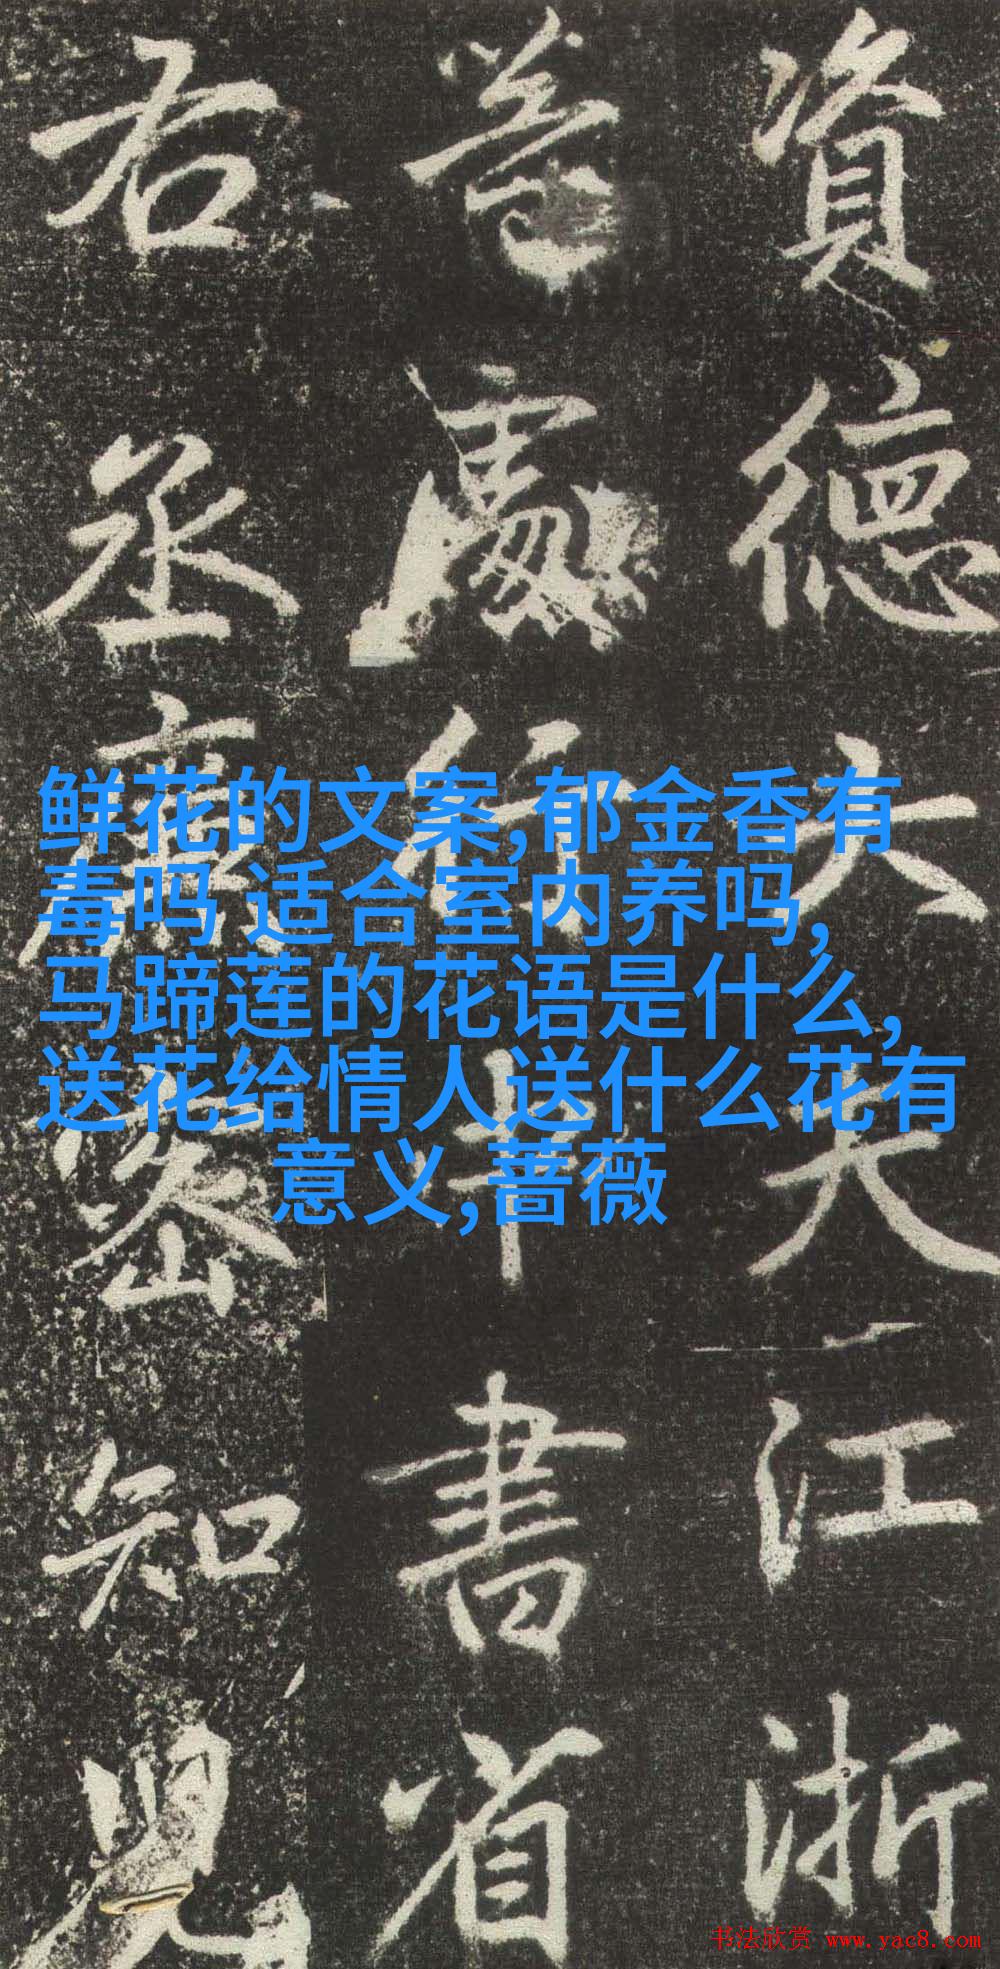 資德大夫江浙
普處行中書省
右丞廉密知兒
鲜花的文案,郁金香有
毒吗 适合室内养吗,
马蹄莲的花语是什么,
送花给情人送什么花有
意义,蔷薇
书法欣赏 www.yac8.com